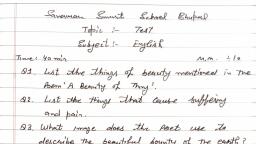 Sarvanan Summit School Bhopal
Topic :- Test
Subject :- English
Time: 40 min M.M. :- 10
Q1. List the things of beauty mentioned in the
Poem 'A Beauty of Thing'.
Q2. List the things that cause suffering
and pain.
Q3. What image does the Poet use to
describe the beautiful bounty of the earth?